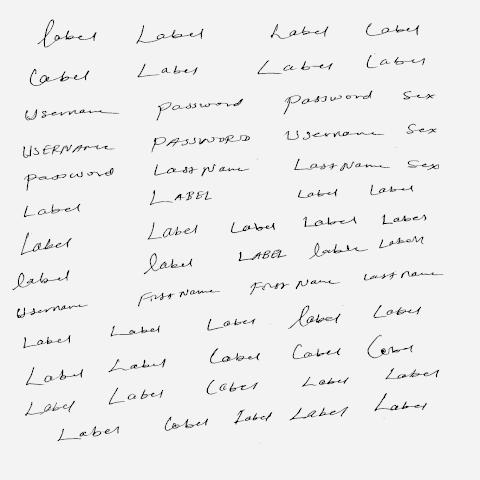 label Label Label Label
Label Label Label Label
Username Password Password Sex
USERNAME PASSWORD Username Sex
Password Last Name Last Name Sex
Label LABEL Label Label
Label Label Label Label Label
label label LABEL label Label
Username First Name First Name Last Name
Label Label Label label Label
Label Label Label Label Label
Label Label Label Label Label
Label Label Label Label Label